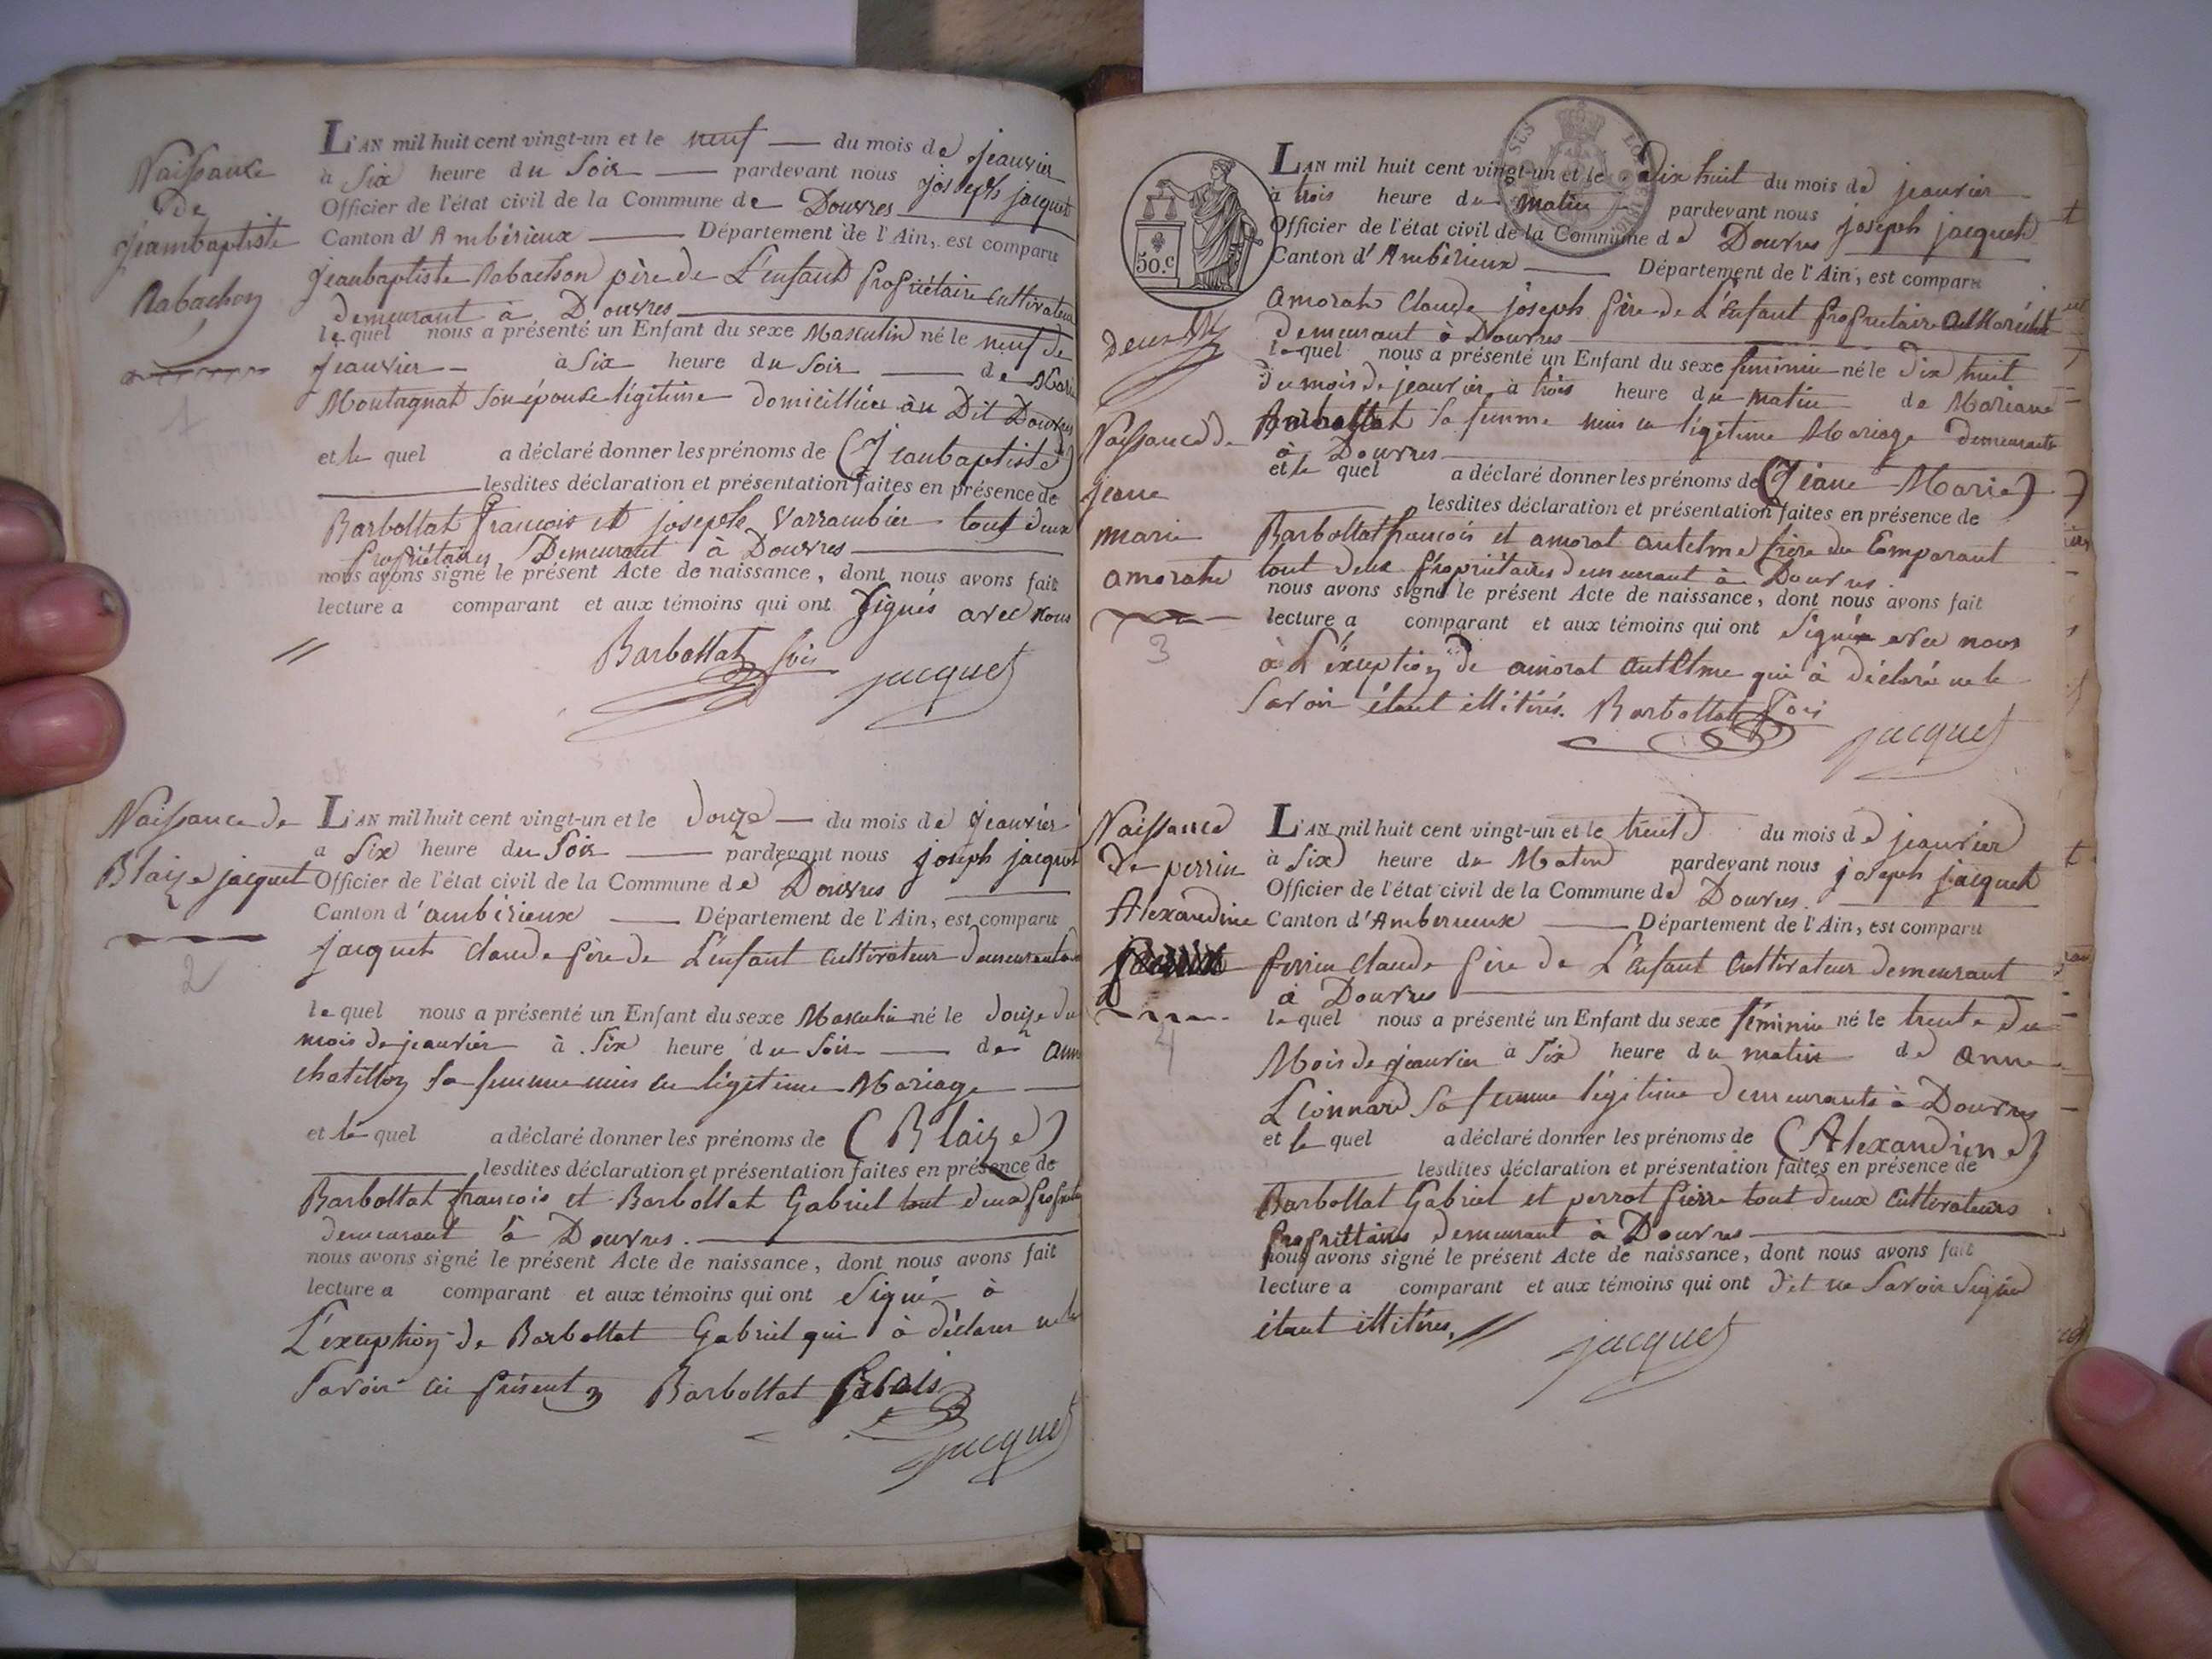 Naissance
de
Jeanbaptiste
Rabachon
1
L'AN mil huit cent vingt-un et le neuf du mois de jeanvier
à Six heure du Soir pardevant nous joseph jacquet
Officier de l'état civil de la Commune de Douvres
Canton d'Ambérieux Département de l'Ain, est comparu
Jeanbaptiste Rabachon père de L'enfant propriétaire cultivateur
demeurant à Douvres
le quel nous a présenté un Enfant du sexe Masculin né le neuf de
jeanvier à Six heure du Soir de Marie
Montagnat son épouse légitime domicilliée au Dit Douvres
et le quel a déclaré donner les prénoms de (Jeanbaptiste)
lesdites déclaration et présentation faites en présence de
Barbollat francois et joseph Varrambier tout deux
propriétaires Demeurant à Douvres
nous avons signé le présent Acte de naissance, dont nous avons fait
lecture a comparant et aux témoins qui ont signés avec nous
Barbollat fois jacquet
Naissance de
Blaize jacquet
2
L'AN mil huit cent vingt-un et le douze du mois de jeanvier
a Six heure du Soir pardevant nous joseph jacquet
Officier de l'état civil de la Commune de Douvres
Canton d'ambérieux Département de l'Ain, est comparu
jacquet claude père de L'enfant cultivateur demeurant
le quel nous a présenté un Enfant du sexe Masculin né le douze du
mois de jeanvier à Six heure du Soir de ann
chatillon sa femme unis en légitime Mariage
et le quel a déclaré donner les prénoms de (Blaize)
lesdites déclaration et présentation faites en présence de
Barbollat francois et Barbollat Gabriel tout deux
demeurant à Douvres.
nous avons signé le présent Acte de naissance, dont nous avons fait
lecture a comparant et aux témoins qui ont Signé à
L'éxception de Barbollat Gabriel qui à déclarer ne le
savoir Barbollat
jacquet
50.c
deux
Naissance de
jeane
marie
amorate
3
L'AN mil huit cent vingt-un et le dix huit du mois de jeanvier
à trois heure du matin pardevant nous joseph jacquet
Officier de l'état civil de la Commune de Douvres
Canton d'Ambérieux Département de l'Ain, est comparu
amorat Claude joseph père de L'enfant propriétaire
demeurant à Douvres
le quel nous a présenté un Enfant du sexe féminin né le dix huit
du mois de jeanvier à trois heure du matin de Mariane
sa femme unis en légitime Mariage demeurante
à Douvres
et le quel a déclaré donner les prénoms de (Jeane Marie)
lesdites déclaration et présentation faites en présence de
Barbollat francois et amorat antelme frère du Comparant
tout deux propriétaires demeurant à Douvres.
nous avons signé le présent Acte de naissance, dont nous avons fait
lecture a comparant et aux témoins qui ont Signés avec nous
à L'éxception de amorat antelme qui à déclaré ne le
savoir étant illitérés. Barbollat fois
jacquet
Naissance
de perrin
Alexandrine
4
L'AN mil huit cent vingt-un et le trente du mois de jeanvier
à Six heure du Matin pardevant nous joseph jacquet
Officier de l'état civil de la Commune de Douvres.
Canton d'Amberieux Département de l'Ain, est comparu
perrin claude père de L'enfant cultivateur demeurant
à Douvres
le quel nous a présenté un Enfant du sexe féminin né le trente du
Mois de jeanvier à Six heure du matin de anne
Lionnard sa femme légitime demeurante à Douvres
et le quel a déclaré donner les prénoms de (Alexandrine)
lesdites déclaration et présentation faites en présence de
Barbollat Gabriel et perrot pierre tout deux cultivateurs
propriétaires demeurant à Douvres
nous avons signé le présent Acte de naissance, dont nous avons fait
lecture a comparant et aux témoins qui ont dit ne savoir Signé
étant illitérés,
jacquet